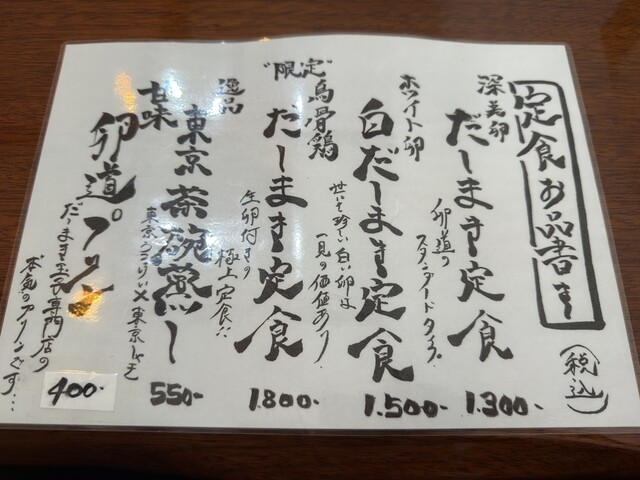 定食お品書き
(税込)
深美卵
だしまき定食
卵道の
スタンダードタイプ。
1.300-
ホワイト卵
白だしまき定食
世にも珍しい白い卵は
一見の価値あり。
1.500-
"限定"
烏骨鶏
だしまき定食
生卵付きの
極上定食!!
1.800-
逸品
東京茶碗蒸し
550-
甘味
卵道プリン
だしまき玉子専門店の
本気のプリンです…
400-